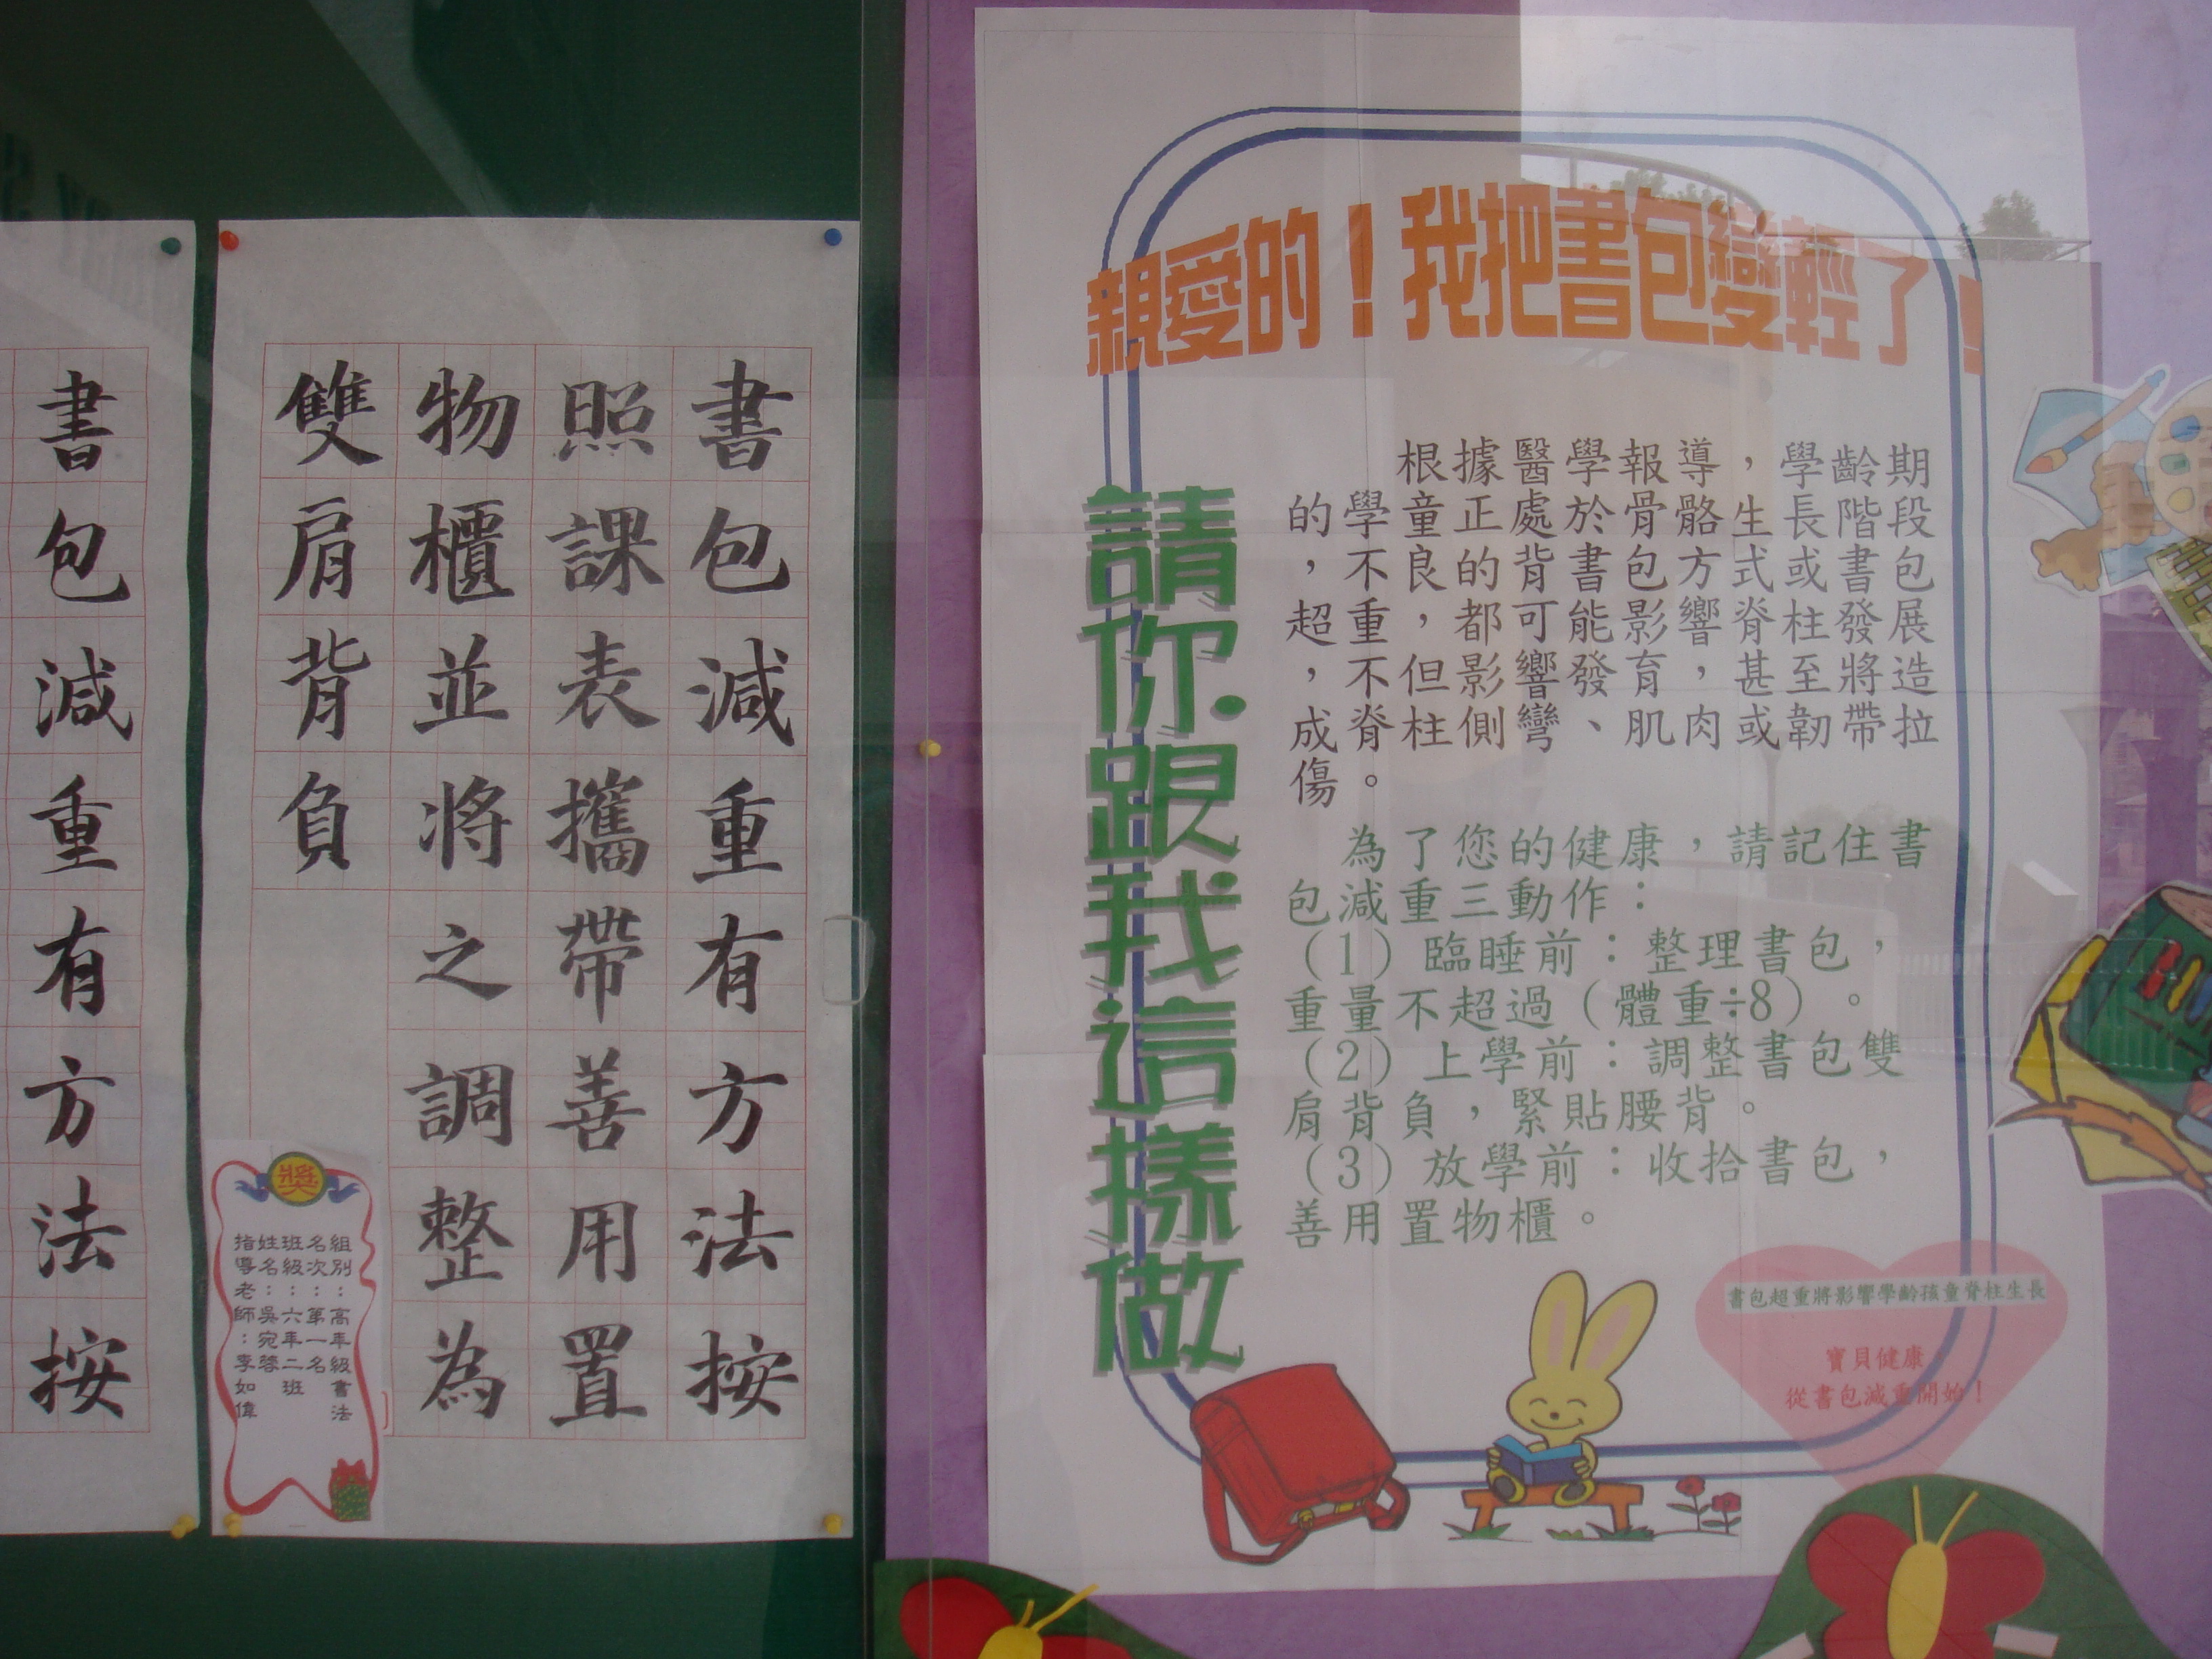 書包減重有方法按
書包減重有方法按
照課表攜帶善用置
物櫃並將之調整為
雙肩背負
獎
組別：高年級書法
名次：第一名
班級：六年二班
姓名：吳宛蓉
指導老師：李如偉
親愛的！我把書包變輕了！
請你跟我這樣做
根據醫學報導，學齡期
的學童正處於骨骼生長階段
，不良的背書包方式或書包
超重，都可能影響脊柱發展
，不但影響發育，甚至將造
成脊柱側彎、肌肉或韌帶拉
傷。
為了您的健康，請記住書
包減重三動作：
(1)臨睡前：整理書包，
重量不超過(體重÷8)。
(2)上學前：調整書包雙
肩背負，緊貼腰背。
(3)放學前：收拾書包，
善用置物櫃。
書包超重將影響學齡孩童脊柱生長
寶貝健康
從書包減重開始！